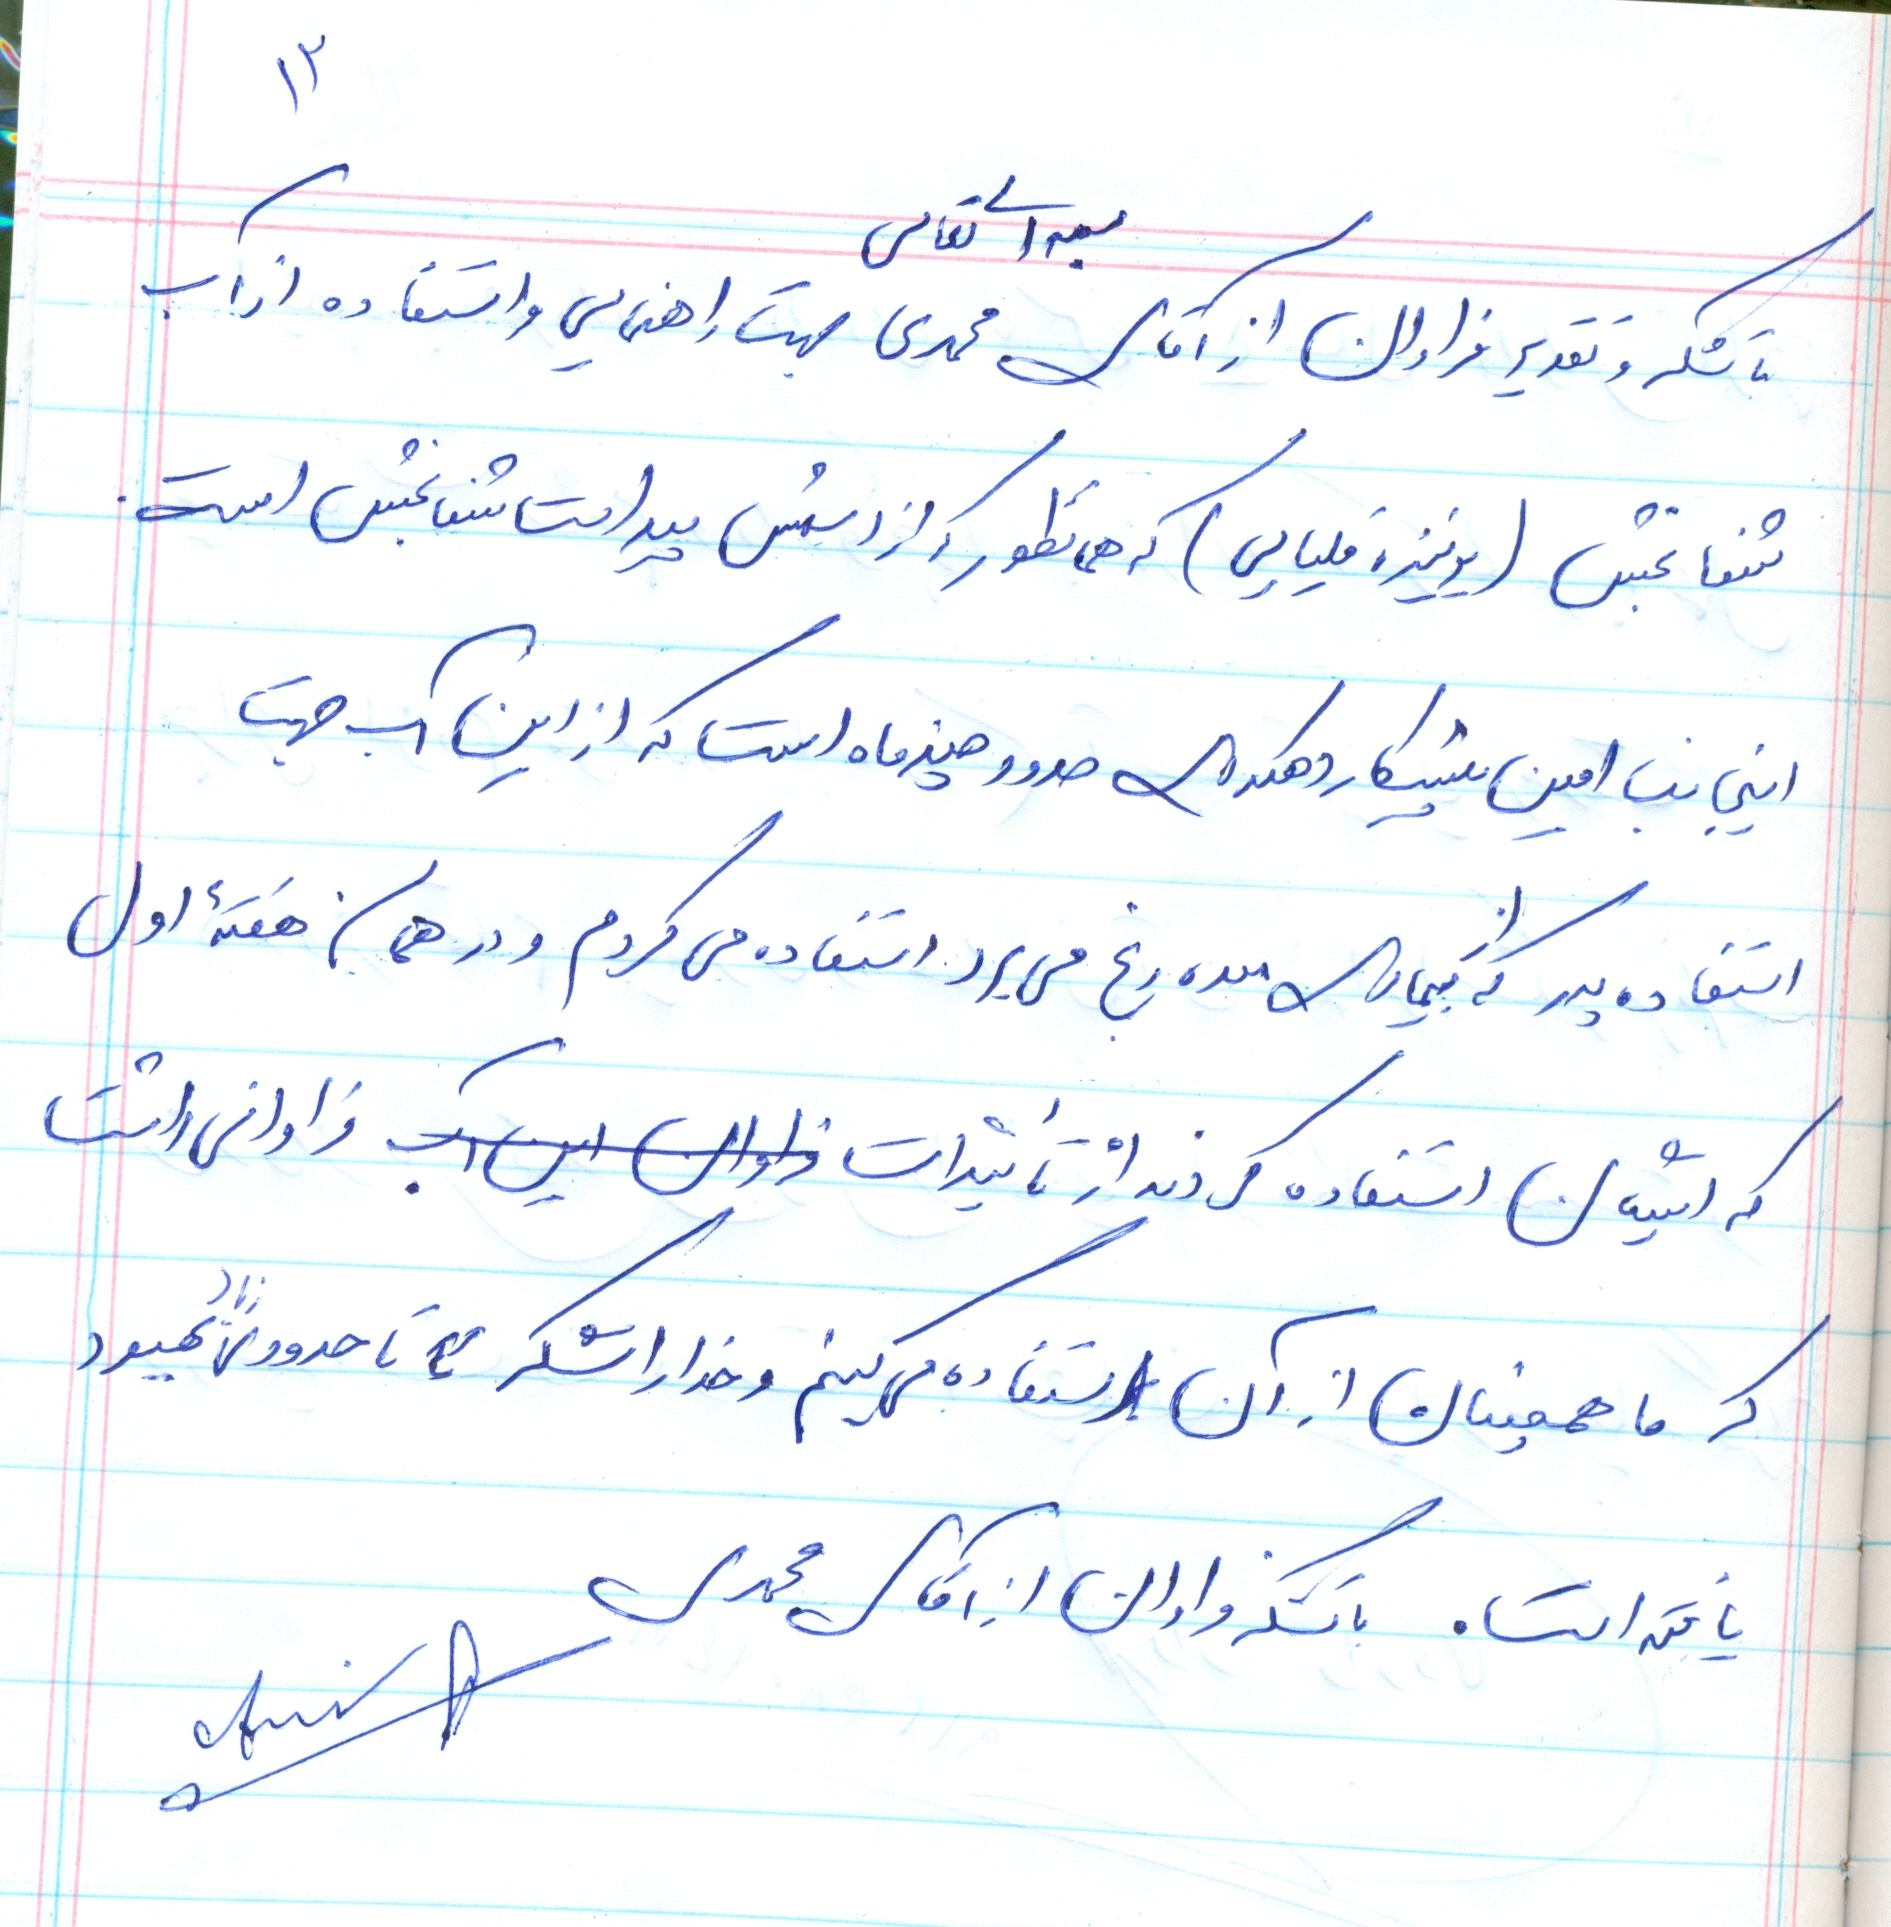 ۱۲
بسمه تعالی
با تشکر و تقدیر فراوان از آقای محمدی جهت راهنمایی و استفاده از آب
شفا بخش (یونیزه قلیایی) که همانطور که از اسمش پیداست شفا بخش است.
اینجانب امین پیشکار دهکردی حدود چند ماه است که از این آب جهت
استفاده پدر که از بیماری معده رنج می‌برد استفاده می‌کردم و در همان هفتهٔ اول
که ایشان استفاده کردند از تأثیرات فراوان این آب فراوانی داشت
که ما همچنان از آن استفاده می‌کنیم و خدا را شکر تا حدودی زیاد بهبود
یافته است. با تشکر فراوان از آقای محمدی